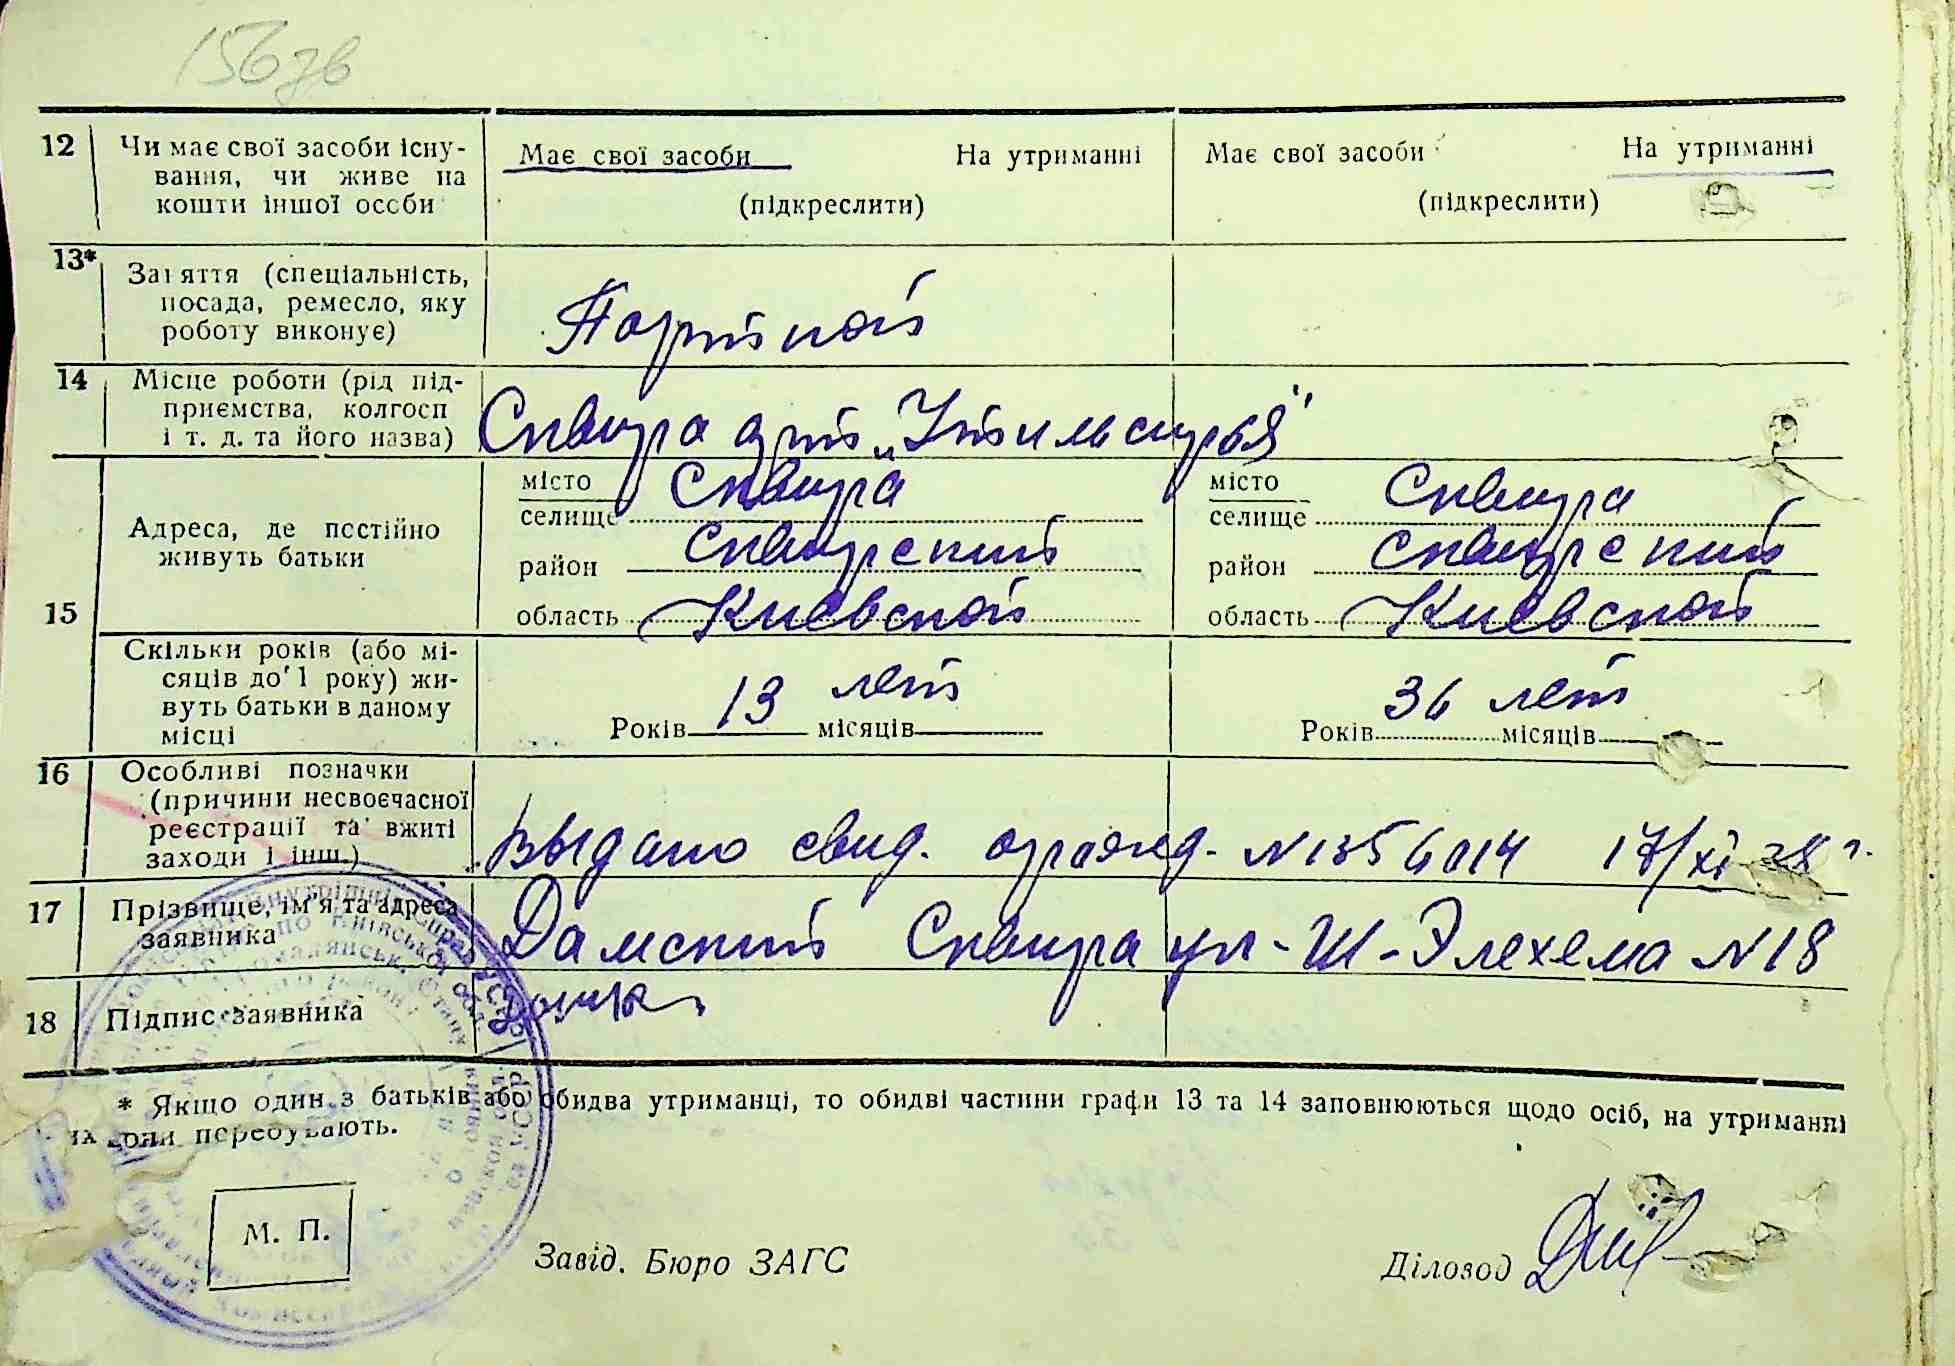 156 зв
12 Чи має свої засоби існу-
вання, чи живе на
кошти іншої особи
Має свої засоби На утриманні
(підкреслити)
Має свої засоби На утриманні
(підкреслити)
13* Заняття (спеціальність,
посада, ремесло, яку
роботу виконує)
Портной
14 Місце роботи (рід під-
приємства, колгосп
і т. д. та його назва)
Сквира арт. „Утильсырья"
15 Адреса, де постійно
живуть батьки
місто Сквира
селище
район Сквирский
область Киевской
місто Сквира
селище
район Сквирский
область Киевской
Скільки років (або мі-
сяців до 1 року) жи-
вуть батьки в даному
місці
Років 13 лет місяців
Років 36 лет місяців
16 Особливі позначки
(причини несвоєчасної
реєстрації та вжиті
заходи і інш.)
Выдано свид. о рожд. N 1356014 17/XI 38 г.
17 Прізвище, ім'я та адреса
заявника
Дамский Сквира ул- Ш-Элехема N 18
18 Підпис заявника
* Якщо один з батьків або обидва утриманці, то обидві частини графи 13 та 14 заповнюються щодо осіб, на утриманні
их вони перебувають.
М. П.
Завід. Бюро ЗАГС
Діловод